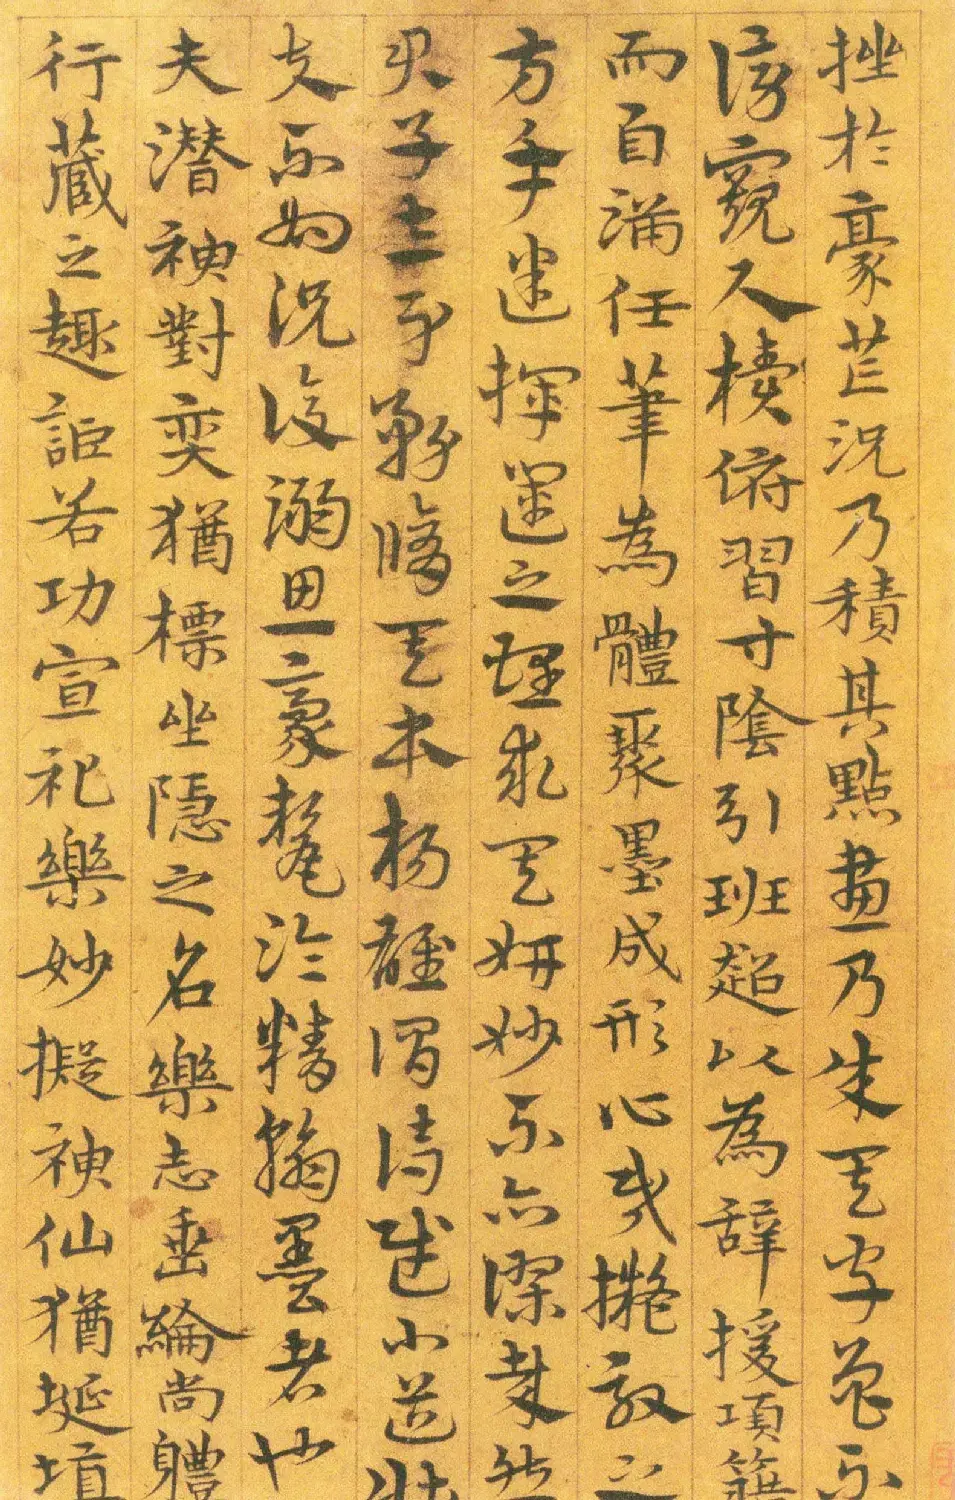 挫於豪芒況乃積其點畫乃成其字曾不
傍窺尺牘俯習寸陰引班超以為辭援項籍
而自滿任筆為體聚墨成形心昏擬效之
方手迷揮運之理求其妍妙不亦謬哉然
君子立身務脩其本楊雄謂詩賦小道壯
夫不為況復溺思豪氂淪精翰墨者也
夫潛神對奕猶標坐隱之名樂志垂綸尚體
行藏之趣詎若功宣礼樂妙擬神仙猶埏埴